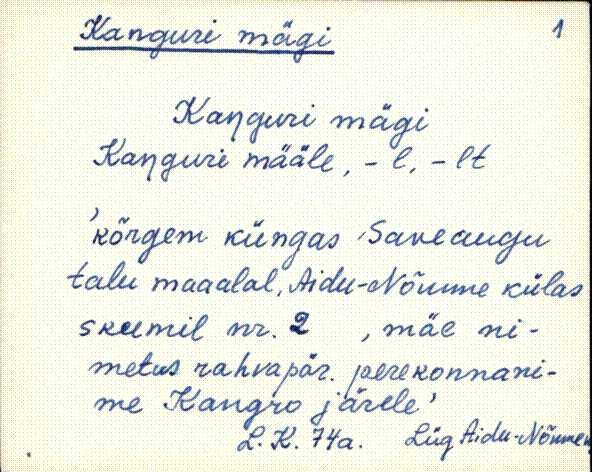 Kanguri mägi 1
Kaŋguri mägi
Kaŋguri määle, -l, -lt
'kõrgem küngas Saveaugu
talu maaalal, Aidu-Nõmme külas
skeemil nr. 2 , mäe ni-
metus rahvapär. perekonnani-
me Kangro järele'
L.K. 74a. Lüg Aidu-Nõmme